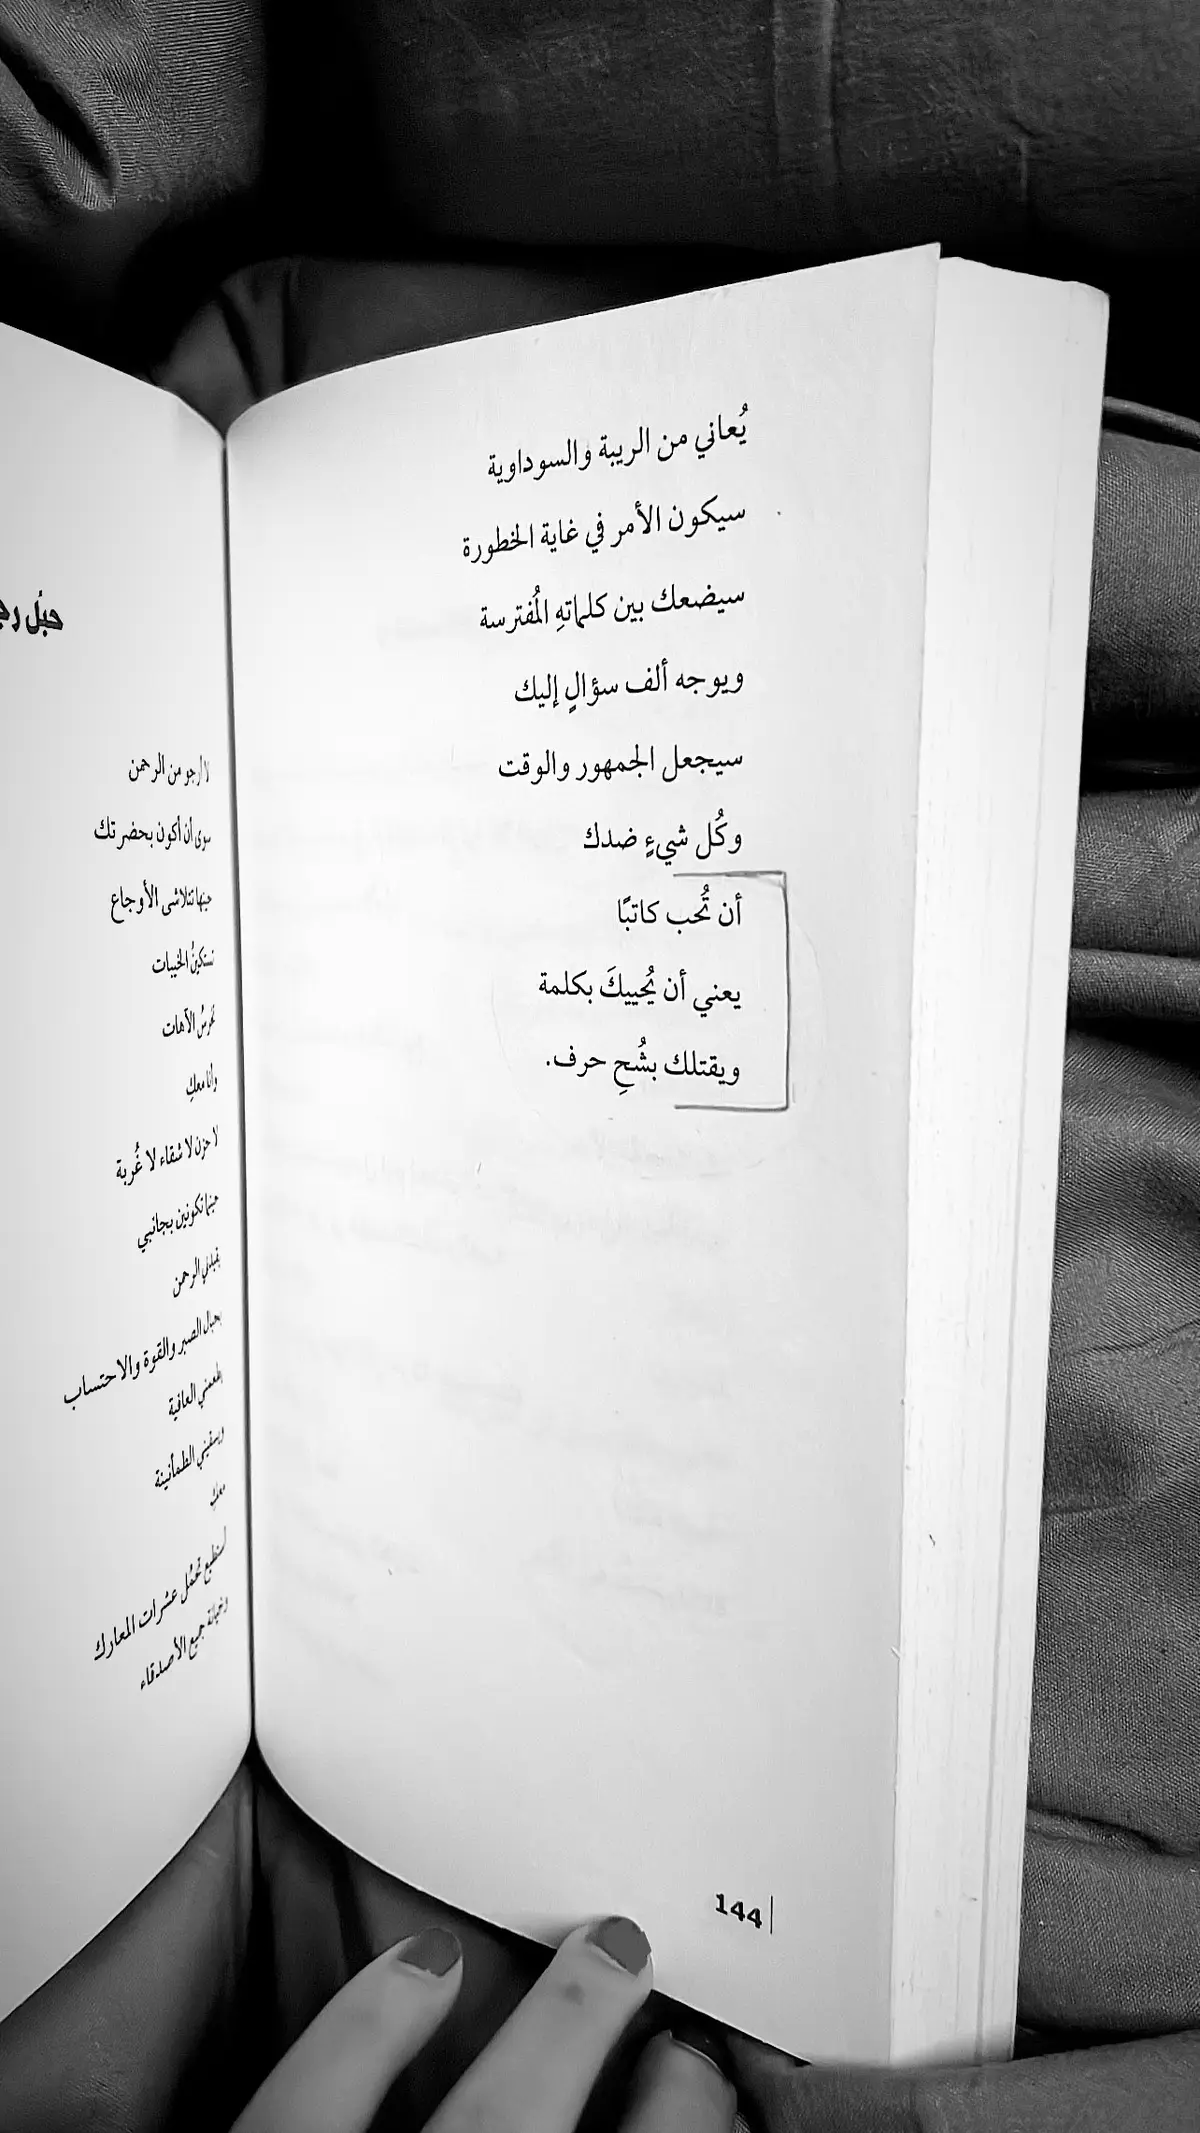 يُعاني من الريبة والسوداوية
سيكون الأمر في غاية الخطورة
سيضعك بين كلماتهِ المُفترسة
ويوجه ألف سؤالٍ إليك
سيجعل الجمهور والوقت
وكُل شيءٍ ضدك
أن تُحب كاتبًا
يعني أن يُحييكَ بكلمة
ويقتلك بشُحِ حرف.
144
حبل
لا أرجو من الرحمن
سوى أن أكون بحضرتك
حينها تتلاشى الأوجاع
تستكينُ الخيبات
تخرسُ الآهات
وأنا معكِ
لا حزن لا شقاء لا غُربة
حينما تكونين بجانبي
يمدني الرحمن
بحبال الصبر والقوة والاحتساب
يطعمني العافية
ويسقيني الطمأنينة
معكِ
أستطيع تحمُّل عشرات المعارك
وخيانة جميع الأصدقاء